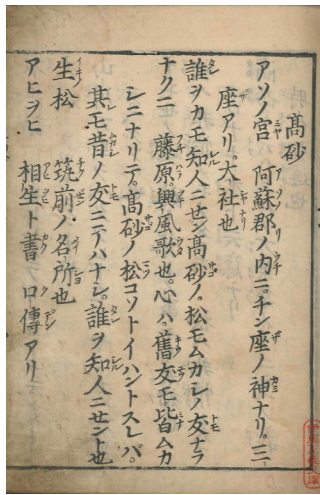 高砂
アソノ宮 阿蘇郡ノ内ニ。チン座ノ神ナリ。三
座アリ。大社也
誰ヲカモ知人ニセン高砂ノ。松モムカシノ友ナラ
ナクニ 藤原ノ興風歌也。心ハ。舊友モ。皆ムカ
シニナリテ。高砂ノ松コソトイハントスレバ。
其モ昔ノ友ニテハナシ。誰ヲ知人ニセント也
生松 筑前ノ名所也
アヒヲヒ 相生ト書 口傳アリ